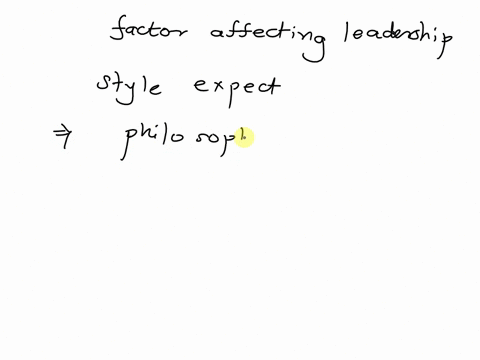 factor affecting leadership
style expect
⇒ philosoph